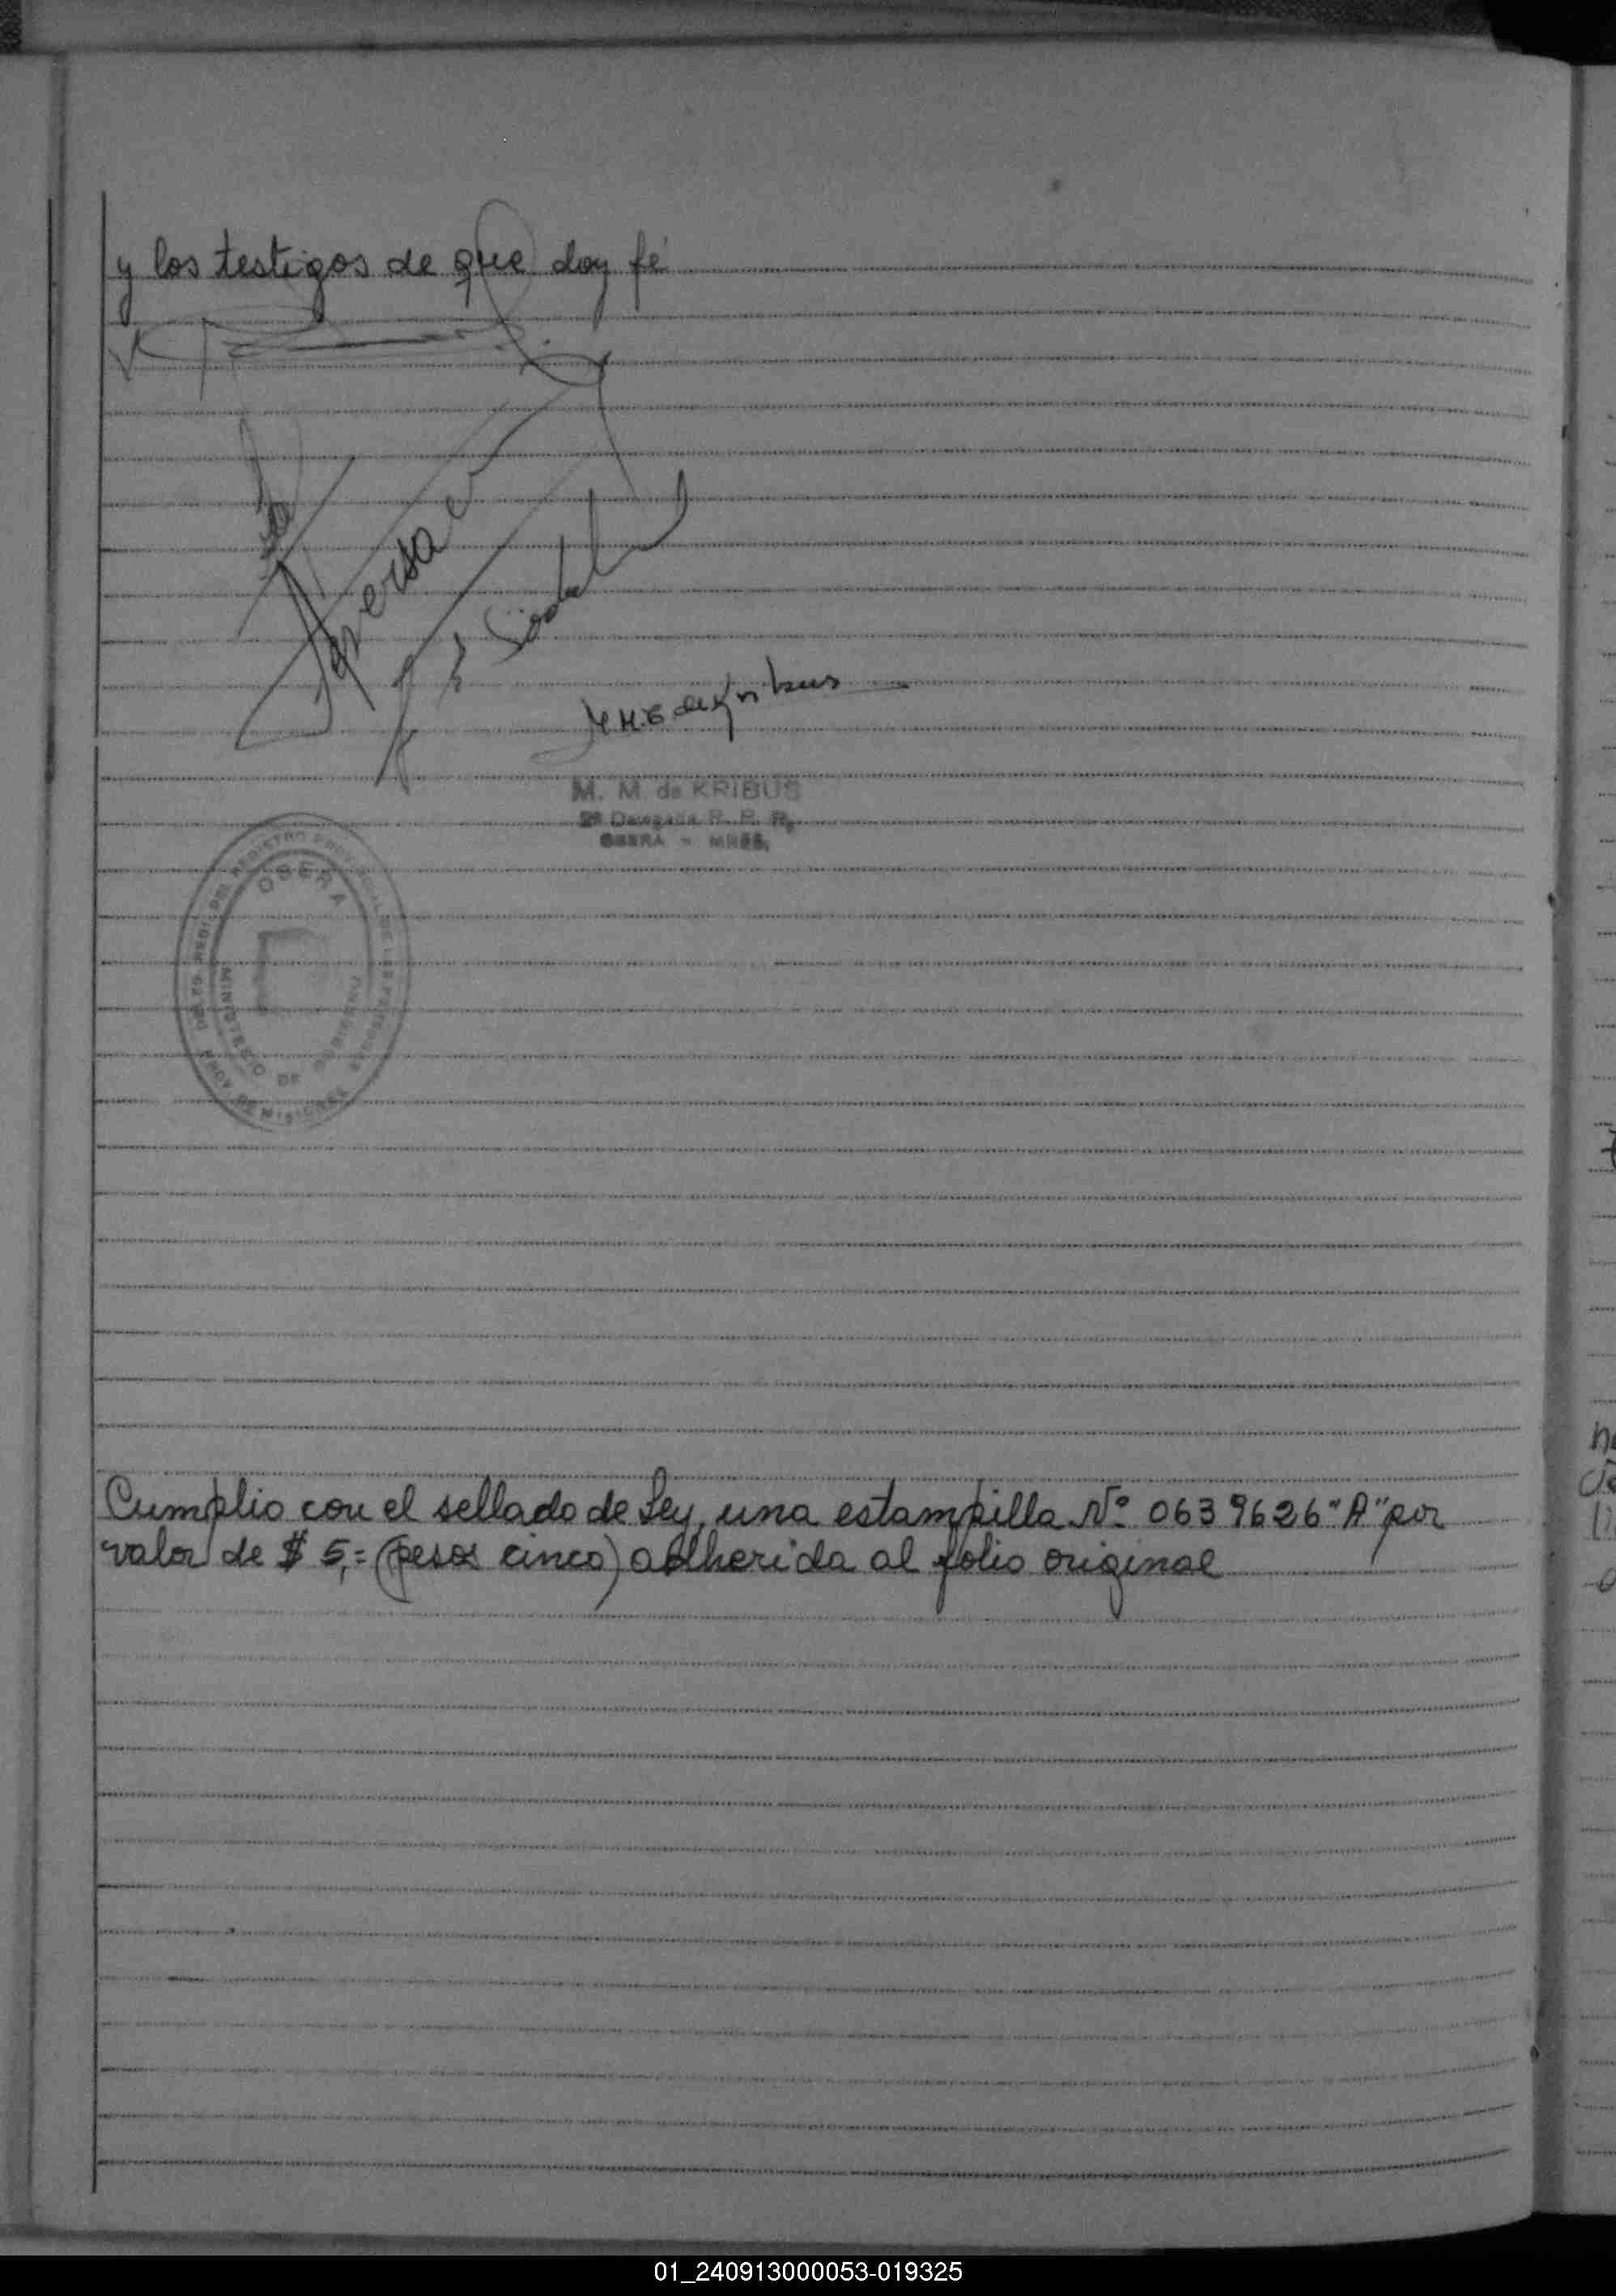 y los testigos de que doy fé
M. M. de KRIBUS
R. P. P.
OBERA - MNES.
OBERA
MINISTERIO DE
Cumplio con el sellado de Ley, una estampilla Nº 0639626 "A" por
valor de $ 5,= (pesos cinco) adherida al folio original
01_240913000053-019325